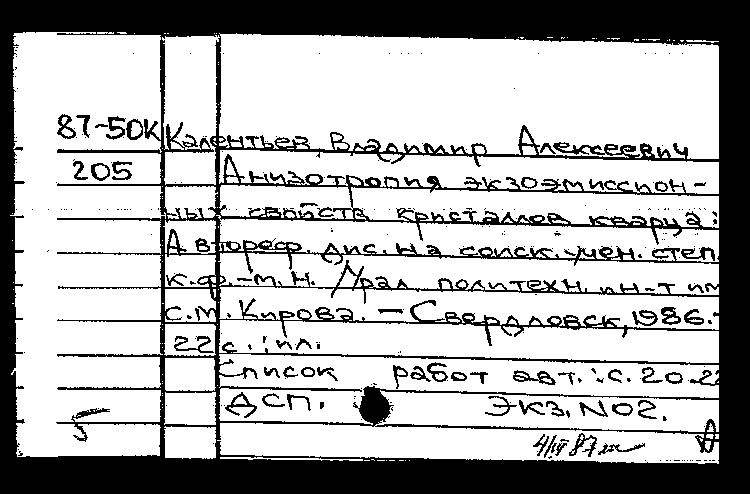 87-50К Калентьев, Владимир Алексеевич
205 Анизотропия экзоэмиссион-
ных свойств кристаллов кварца:
Автореф. дис. на соиск. учен. степ.
к.ф.-м.н. /Урал. политехн. ин-т им
с.м. Кирова. - Свердловск, 1986.-
22 с.: ил.
Список работ авт.: с. 20-22
ДСП. Экз. N02.
5
4/III 87